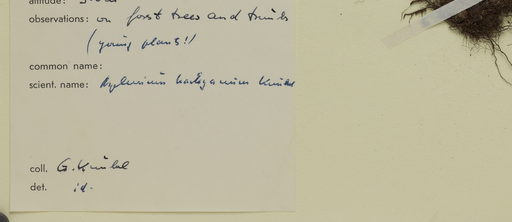 altitude:
observations: on forst trees and trunks
(young plans!)
common name:
scient. name: Asplenium
coll. G. Kunkel
det. id.